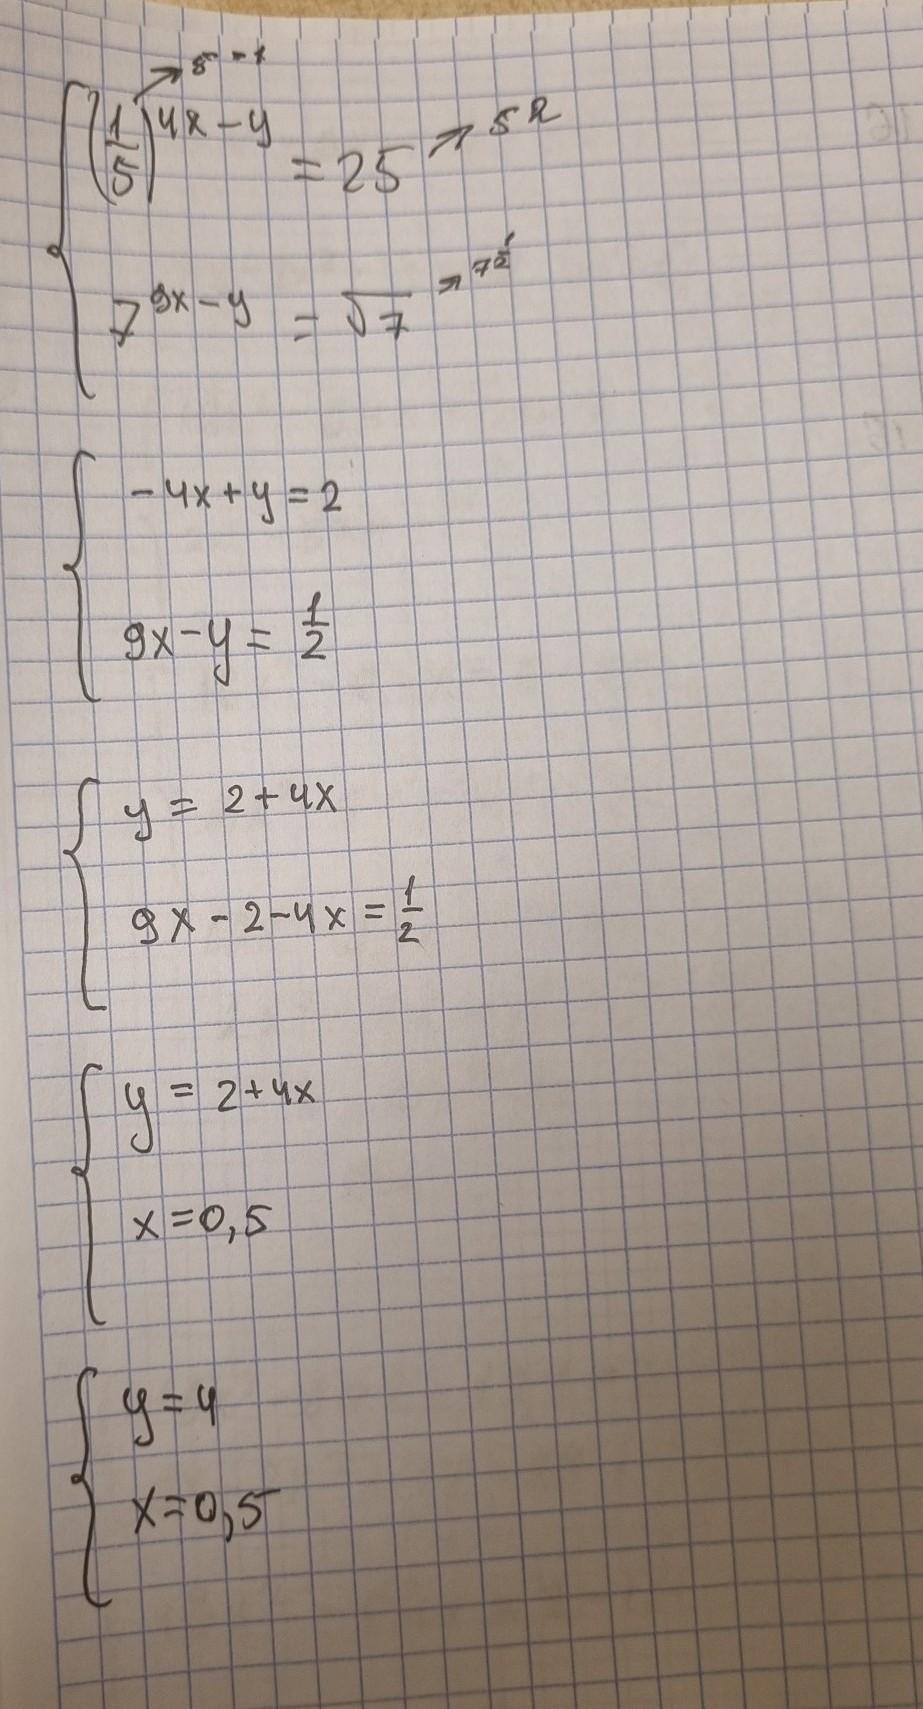 (1/5)^(4x-y) → 5^-1 = 25 → 5^2
7^(9x-y) = √7 → 7^(1/2)
-4x+y=2
9x-y=1/2
y=2+4x
9x-2-4x=1/2
y=2+4x
x=0,5
y=4
x=0,5